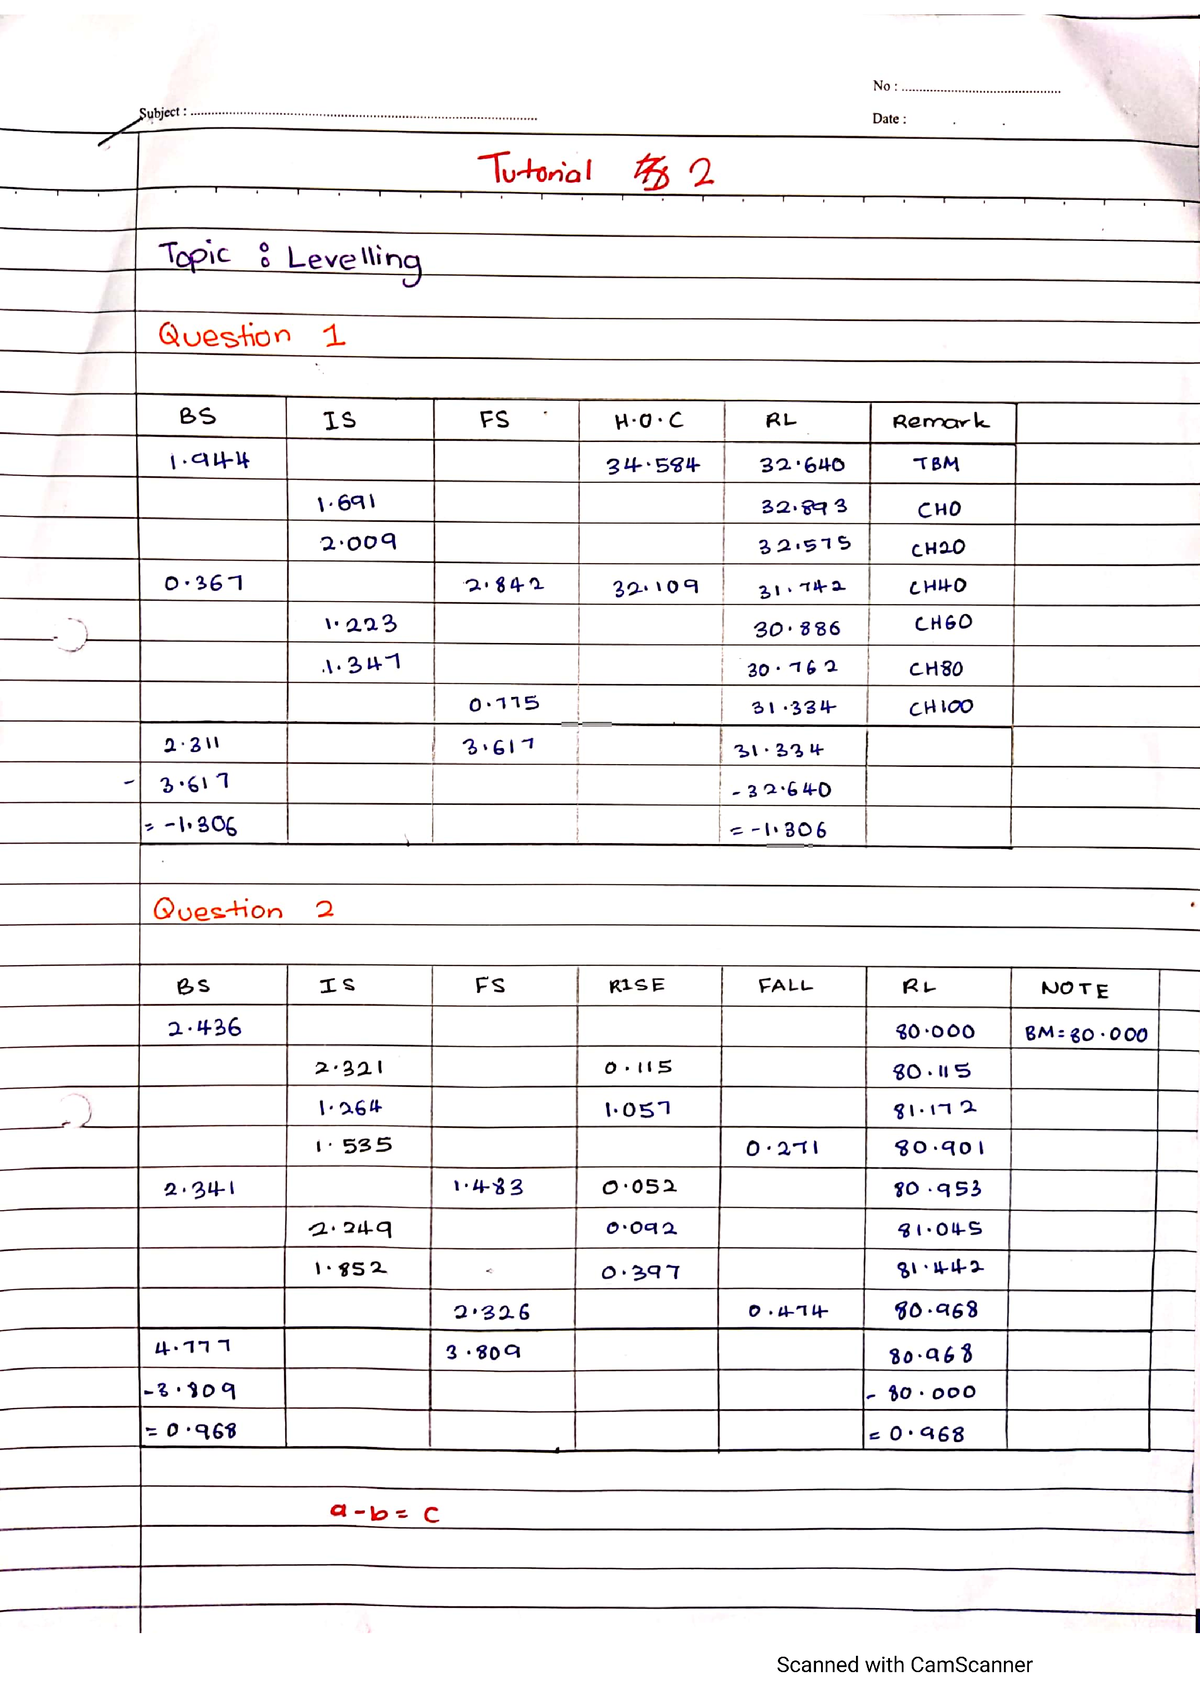 No : ............................................
Subject : ................................................................................................
Date : . .
Tutorial 2
Topic : Levelling
Question 1
BS IS FS H.O.C RL Remark
1.944 34.584 32.640 TBM
1.691 32.893 CH0
2.009 32.575 CH20
0.367 2.842 32.109 31.742 CH40
1.223 30.886 CH60
1.347 30.762 CH80
0.775 31.334 CH100
2.311 3.617 31.334
- 3.617 - 32.640
= -1.306 = -1.306
Question 2
BS IS FS RISE FALL RL NOTE
2.436 80.000 BM = 80.000
2.321 0.115 80.115
1.264 1.057 81.172
1.535 0.271 80.901
2.341 1.483 0.052 80.953
2.249 0.092 81.045
1.852 0.397 81.442
2.326 0.474 80.968
4.777 3.809 80.968
-3.809 - 80.000
= 0.968 = 0.968
a - b = c
Scanned with CamScanner